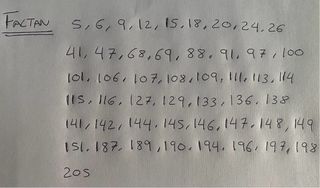 FACTAN 5, 6, 9, 12, 15, 18, 20, 24, 26
41, 47, 68, 69, 88, 91, 97, 100
101, 106, 107, 108, 109, 111, 113, 114
115, 116, 127, 129, 133, 136, 138
141, 142, 144, 145, 146, 147, 148, 149
151, 187, 189, 190, 194, 196, 197, 198
205